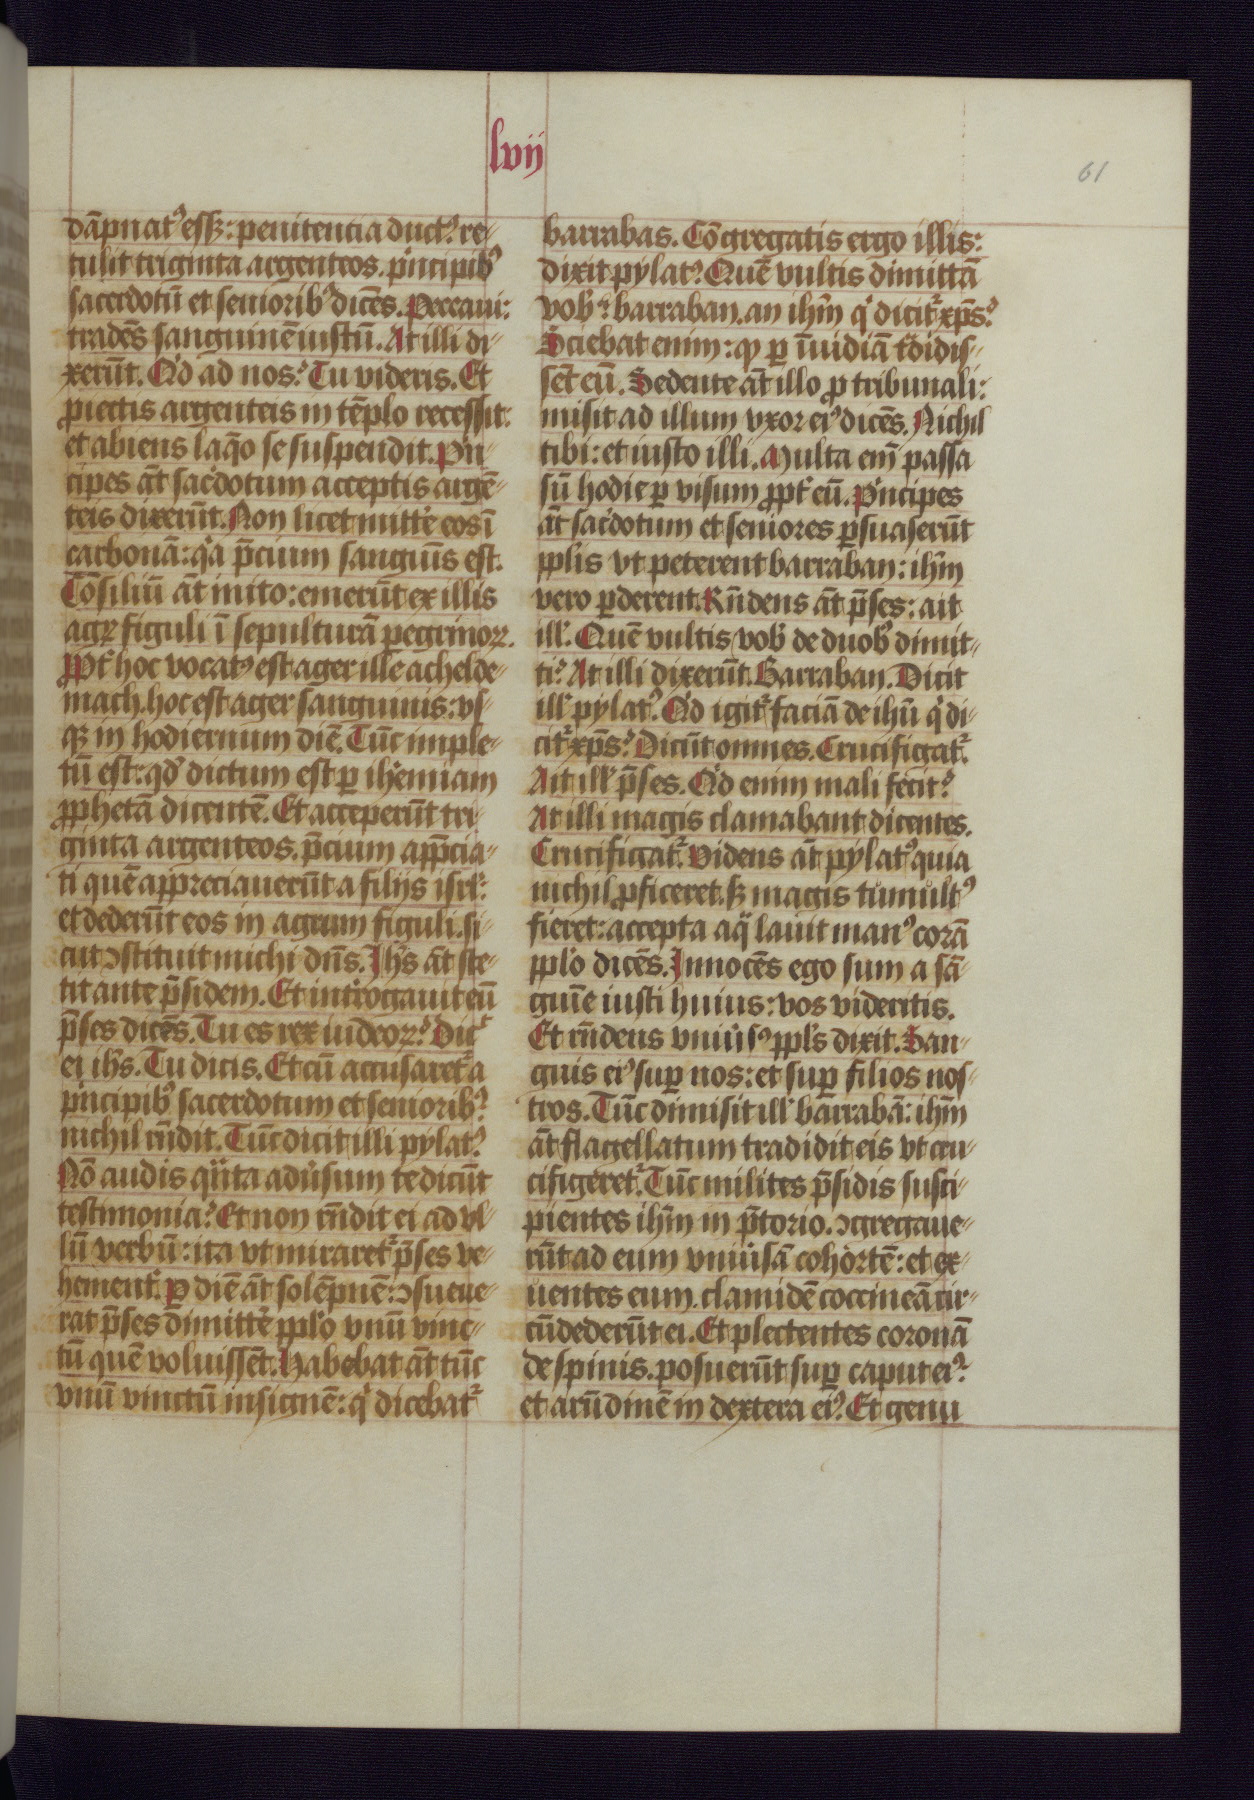 lvij
61
dāpnatꝰ essꝫ: penitencia ductꝰ re⸗
tulit triginta argenteos. pͥncipibꝰ
sacerdotū et senioribꝰ dicēs. Peccaui:
tradēs sanguinē iustū. At illi di⸗
xerūt. Qͥd ad nos? Tu videris. Et
ꝓiectis argenteis in tēplo recessit:
et abiens laq̄o se suspendit. Pͥn⸗
cipes āt sac̾dotum acceptis argē⸗
teis dixerūt. Non licet mitt̾e eos ī
carbonā: qͥa p̄cium sanguīs est.
Cōsiliū āt inito: emerūt ex illis
agrꝝ figuli ī sepulturā pegrinoꝝ.
Ꝓpt̾ hoc vocatꝰ est ager ille achelde⸗
mach. hoc est ager sanguinis: vs⸗
qꝫ in hodiernum diē. Tūc imple⸗
tū est: qd̾ dictum est ꝑ ih̾emiam
ꝓphetā dicentē. Et acceperūt tri⸗
ginta argenteos. p̄cium app̄cia⸗
ti quē appreciauerūt a filijs isrl̾:
et dederūt eos in agrum figuli. si⸗
cut ꝯstituit michi dn̄s. Ihs̄ āt ste⸗
tit ante p̄sidem. Et int̾rogauit eū
p̄ses dicēs. Tu es rex iudeoꝝ? Dic̾
ei ihs̄. Tu dicis. Et cū accusaret᷑ a
pͥncipibꝰ sacerdotum et senioribꝰ
nichil rn̄dit. Tūc dicit illi pylatꝰ.
Nō audis qͣnta adu̾sum te dicūt
testimonia? Et non rn̄dit ei ad vl⸗
lū verbū: ita vt miraret᷑ p̄ses ve⸗
hement̾. Ꝑ diē āt solēpnē: ꝯsueue⸗
rāt p̄ses dimitt̾e ppl̾o vnū vinc⸗
tū quē voluissēt. Habebat āt tūc
vnū vinctū insignē: qͥ dicebat᷑
barrabas. Cōgregatis ergo illis:
dixit pylatꝰ. Quē vultis dimittā
vob̾? barraban. an ihm̄ qͥ dicit᷑ xp̄s?
Sciebat enim: qꝙ ꝑ īuidiā t̾didis⸗
sēt eū. Sedente āt illo ꝓ tribunali:
misit ad illum vxor eiꝰ dicēs. Nichil
tibi: et iusto illi. Multa em̄ passa
sū hodie ꝑ visum ꝓpt̾ eū. Pͥncipes
āt sac̾dotum et seniores ꝑsuaserūt
ppl̾is vt peterent barraban: ihm̄
vero ꝑderent. Rn̄dens āt p̄ses: ait
ill̾. Quē vultis vob̾ de duob̾ dimit⸗
ti? At illi dixerūt. Barraban. Dicit
ill̾ pylatꝰ. Qͥd igit᷑ faciā de ihū qͥ di⸗
cit᷑ xp̄s? Dicūt omnes. Crucifigat᷑.
Ait ill̾ p̄ses. Qͥd enim mali fecit?
At illi magis clamabant dicentes.
Crucifigat᷑. Videns āt pylatꝰ quia
nichil ꝓficeret. sꝫ magis tumultꝰ
fieret: accepta aqͣ lauit manꝰ corā
ppl̾o dicēs. Innocēs ego sum a sā⸗
guīe iusti huius: vos videritis.
Et rn̄dens vniu̾sꝰ ppl̾s dixit. San⸗
guis eiꝰ suꝑ nos: et suꝑ filios nos⸗
tros. Tūc dimisit ill̾ barrabā: ihm̄
āt flagellatum tradidit eis vt cru⸗
cifigeret᷑. Tūc milites p̄sidis susci⸗
pientes ihm̄ in p̄torio. ꝯgregaue⸗
rūt ad eum vniu̾sā cohortē: et ex⸗
uentes eum. clamidē coccineā cir⸗
cūdederūt ei. Et plectentes coronā
de spinis. posuerūt suꝑ caput eiꝰ:
et arūdinē in dextera eiꝰ. Et genu